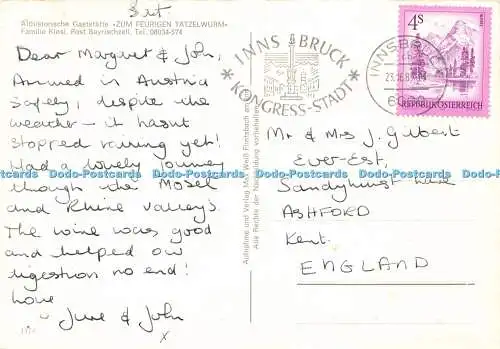 3rd
Aldusionsche Gaststätte «ZUM FEURIGEN TATZELWURM»
Familie Kiesl, Post Bayrischzell, Tel. 08034-574
Dear Margaret & John,
Arrived in Austria
safely, despite the
weather - it hasn't
stopped raining yet!
Had a lovely journey
through the Mosel
and Rhine Valleys.
The wine was good
and helped our
digestion no end!
Love
June & John
x
Aufnahme und Verlag Max
Alle Rechte der Nachbildung vorbehalten
INNSBRUCK
KONGRESS-STADT
INNSBRUCK
4S
REPUBLIK ÖSTERREICH
Mr & Mrs J. Gilbert
Ever-Est,
Sandyhurst Lane
ASHFORD
Kent.
ENGLAND
Dodo-Postcards Dodo-Postcards Dodo-Postcards Dodo-Postcards